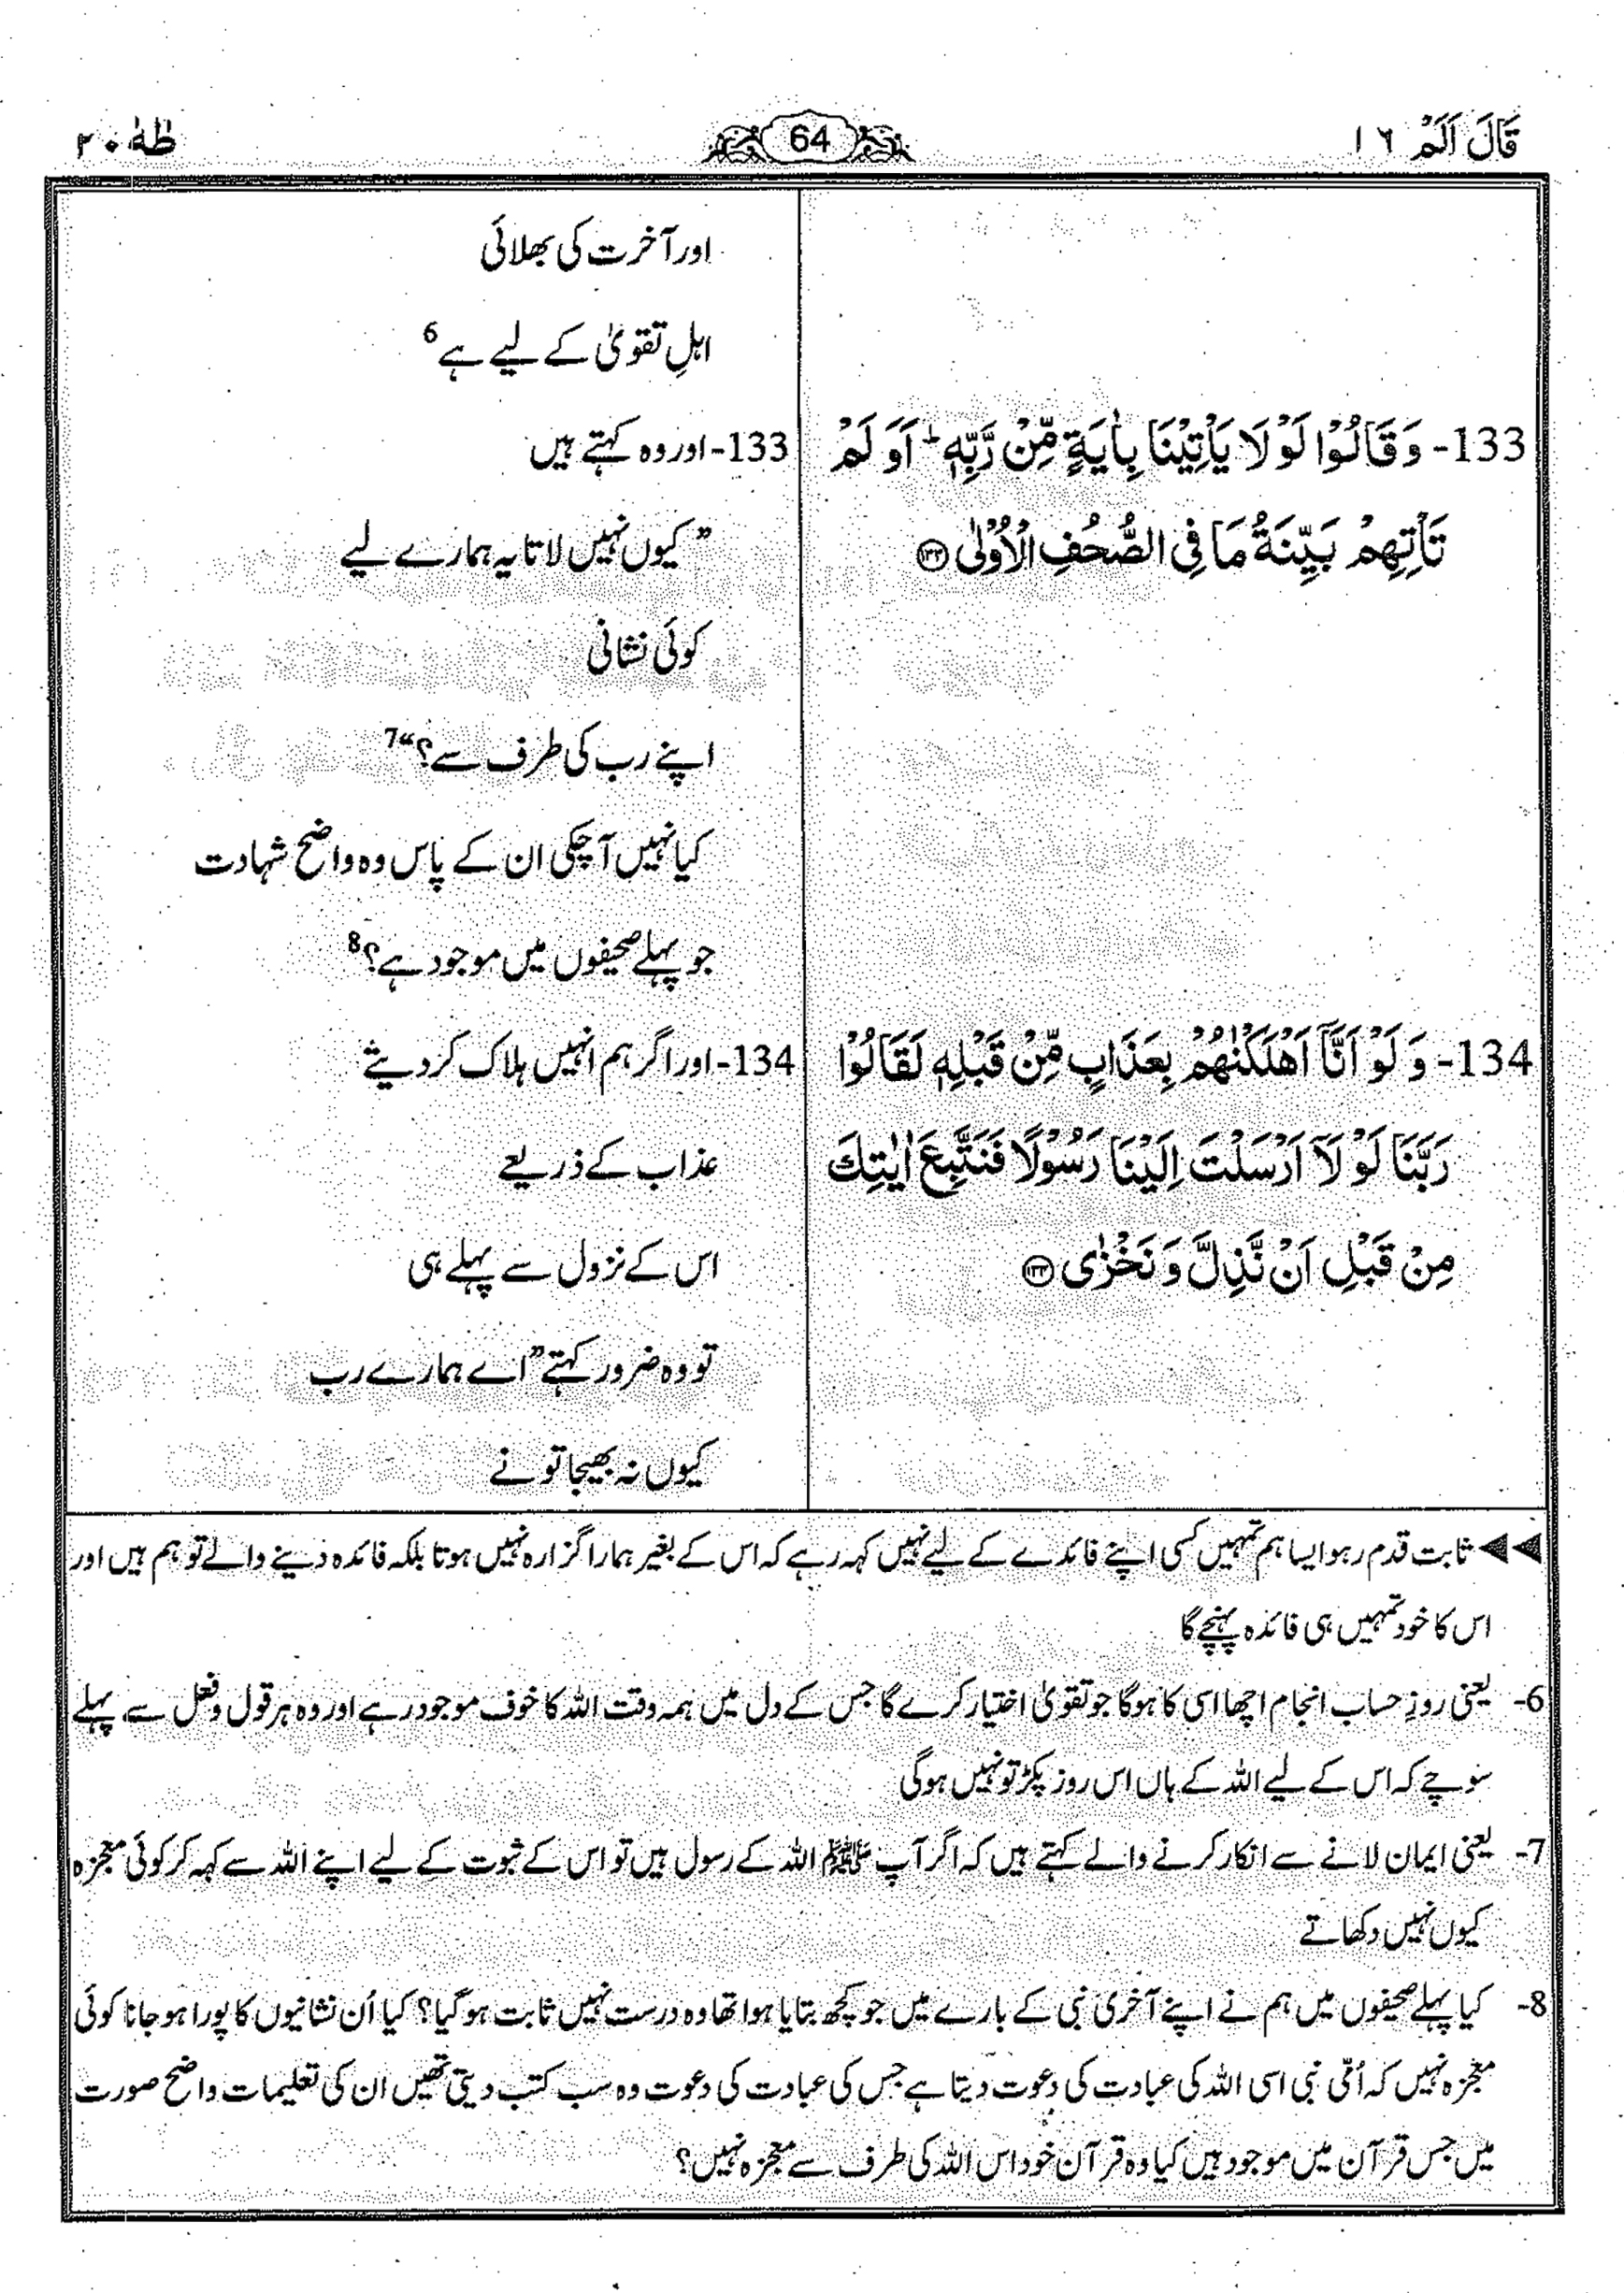 قَالَ اَلَمْ ١٦
64
طٰهٰ ٢٠
اور آخرت کی بھلائی
اہلِ تقویٰ کے لیے ہے6
133- وَ قَالُوْا لَوْ لَا يَاْتِيْنَا بِاٰيَةٍ مِّنْ رَّبِّهٖ ؕ اَوَ لَمْ
تَاْتِهِمْ بَيِّنَةُ مَا فِي الصُّحُفِ الْاُوْلٰى ۝١٣٣
133- اور وہ کہتے ہیں
”کیوں نہیں لاتا یہ ہمارے لیے
کوئی نشانی
اپنے رب کی طرف سے؟“7
کیا نہیں آ چکی ان کے پاس وہ واضح شہادت
جو پہلے صحیفوں میں موجود ہے؟8
134- وَ لَوْ اَنَّاۤ اَهْلَكْنٰهُمْ بِعَذَابٍ مِّنْ قَبْلِهٖ لَقَالُوْا
رَبَّنَا لَوْ لَاۤ اَرْسَلْتَ اِلَيْنَا رَسُوْلًا فَنَتَّبِعَ اٰيٰتِكَ
مِنْ قَبْلِ اَنْ نَّذِلَّ وَ نَخْزٰى ۝١٣٤
134- اور اگر ہم انہیں ہلاک کر دیتے
عذاب کے ذریعے
اس کے نزول سے پہلے ہی
تو وہ ضرور کہتے ”اے ہمارے رب
کیوں نہ بھیجا تو نے
◀◀ ثابت قدم رہو ایسا ہم تمہیں کسی اپنے فائدے کے لیے نہیں کہہ رہے کہ اس کے بغیر ہمارا گزارہ نہیں ہوتا بلکہ فائدہ دینے والے تو ہم ہیں اور
اس کا خود تمہیں ہی فائدہ پہنچے گا
6- یعنی روزِ حساب انجام اچھا اسی کا ہوگا جو تقویٰ اختیار کرے گا جس کے دل میں ہمہ وقت اللہ کا خوف موجود رہے اور وہ ہر قول و فعل سے پہلے
سوچے کہ اس کے لیے اللہ کے ہاں اس روز پکڑ تو نہیں ہوگی
7- یعنی ایمان لانے سے انکار کرنے والے کہتے ہیں کہ اگر آپ ﷺ اللہ کے رسول ہیں تو اس کے ثبوت کے لیے اپنے اللہ سے کہہ کر کوئی معجزہ
کیوں نہیں دکھاتے
8- کیا پہلے صحیفوں میں ہم نے اپنے آخری نبی کے بارے میں جو کچھ بتایا ہوا تھا وہ درست نہیں ثابت ہو گیا؟ کیا اُن نشانیوں کا پورا ہو جانا کوئی
معجزہ نہیں کہ اُمّی نبی اسی اللہ کی عبادت کی دعوت دیتا ہے جس کی عبادت کی دعوت وہ سب کتب دیتی تھیں ان کی تعلیمات واضح صورت
میں جس قرآن میں موجود ہیں کیا وہ قرآن خود اس اللہ کی طرف سے معجزہ نہیں؟